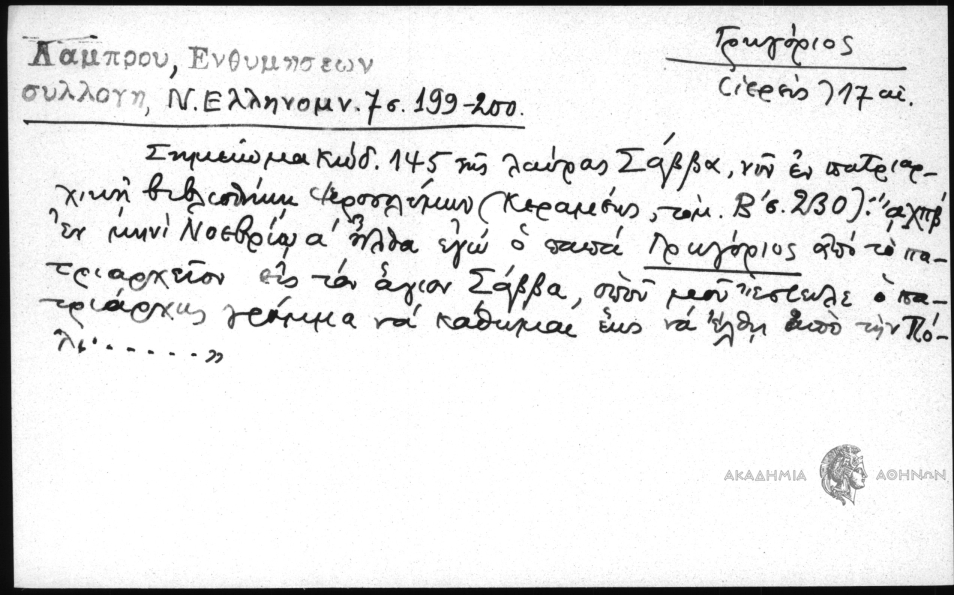 Λάμπρου, Ενθυμησεων
συλλογη, Ν. Ελληνομν. 7 σ. 199-200.
Γρηγόριος
(ἱερεὺς) 17 αἰ.
Σημείωμα Κώδ. 145 τῆς λαύρας Σάββα, νῦν ἐν πατριαρ-
χικῇ βιβλιοθήκῃ Ἱεροσολύμων (Κεραμεύς, τόμ. Β' σ. 230): "αχπβ
ἐν μηνὶ Νοεβρίῳ α' ἦλθα ἐγὼ ὁ παπὰ Γρηγόριος ἀπὸ τὸ πα-
τριαρχεῖον εἰς τὸν ἅγιον Σάββα, ὁποῦ μοῦ ἔστειλε ὁ πα-
τριάρχης γράμμα νὰ κάθωμαι ἕως νὰ ἔλθῃ ἀπὸ τὴν Πό-
λι......»
ΑΚΑΔΗΜΙΑ ΑΘΗΝΩΝ